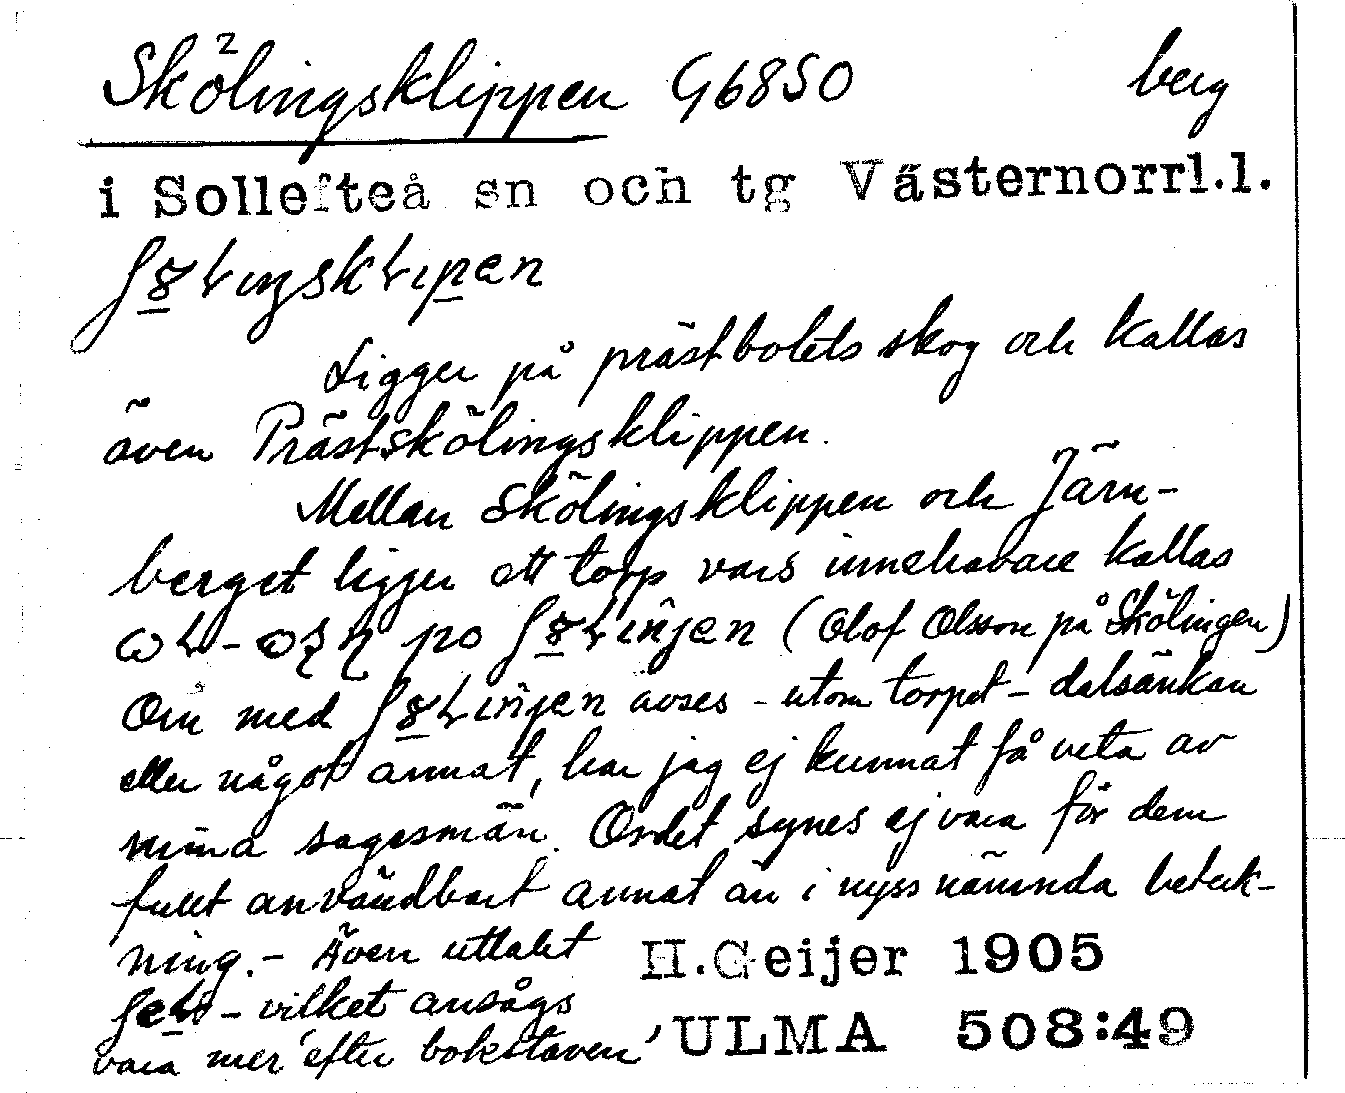 Skölingsklippen G6850 berg
2
i Sollefteå sn och tg Västernorrl.l.
Ligger på prästbolets skog och kallas
även Prästskölingsklippen.
Mellan Skölingsklippen och Järn-
berget ligger ett torp vars innehavare kallas
(Olof Olsson på Skölingen)
Om med avses - utom torpet - dalsänkan
eller något annat, har jag ej kunnat få veta av
mina sagesmän. Ordet synes ej vara för dem
fullt användbart annat än i nyss nämnda beteck-
ning. - Även uttalet H.Geijer 1905
- vilket ansågs
vara mer 'efter bokstaven' ULMA 508:49